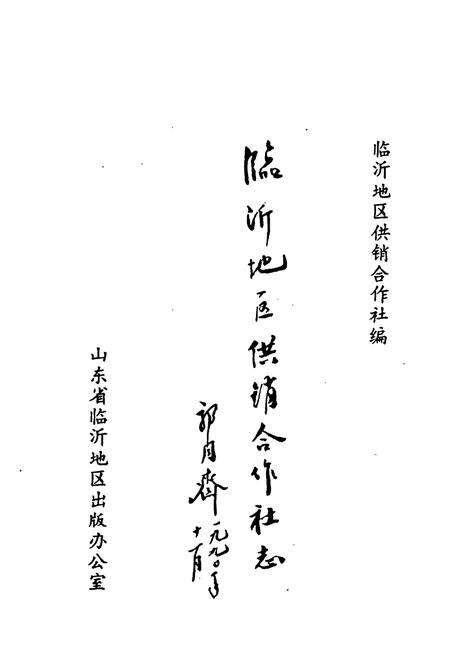 临沂地区供销合作社编
临沂地区供销合作社志
郭月斋
一九九〇年
十一月
山东省临沂地区出版办公室